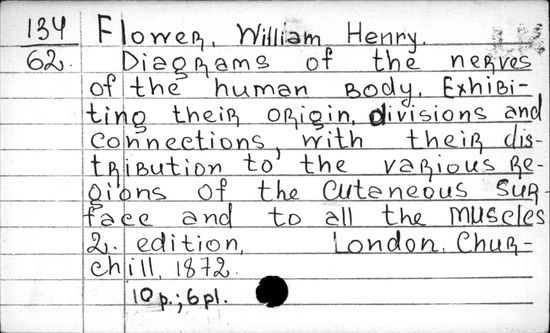 134 Flower, William Henry.
62. Diagrams of the nerves
of the human body, Exhibi-
ting their origin, divisions and
connections, with their dis-
tribution to the various re-
gions of the cutaneous sur-
face and to all the muscles
2. edition, London. Chur-
chill, 1872.
10 p.; 6 pl.